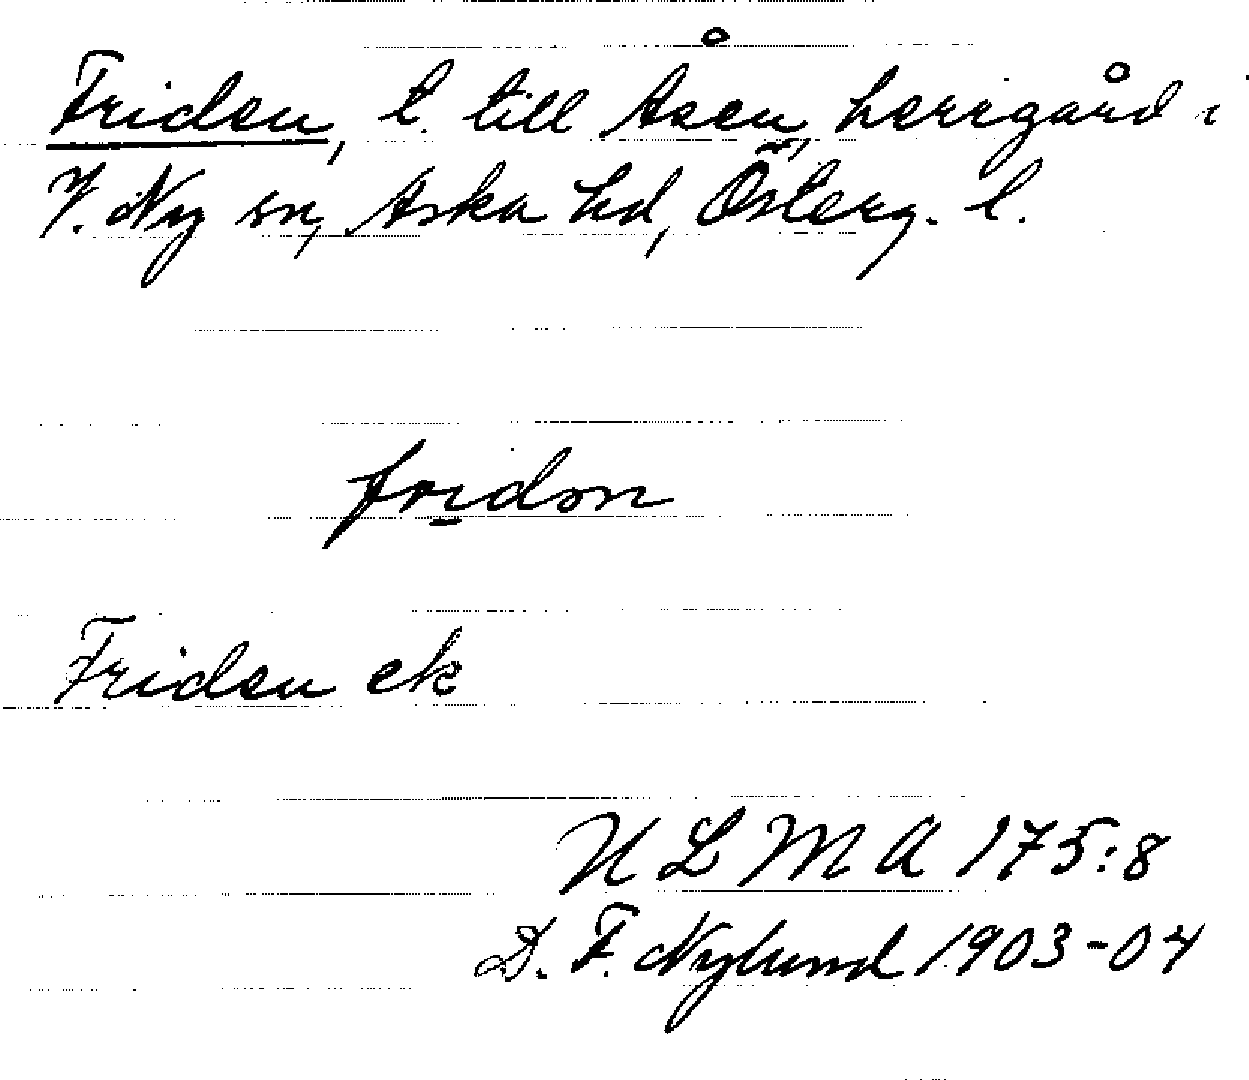 Fridsen, t. till Åsen, herrgård i
V. Ny sn, Aska hd, Österg. l.
fridsn
Fridsen ek
ULMA 175:8
D. F. Nylund 1903-04